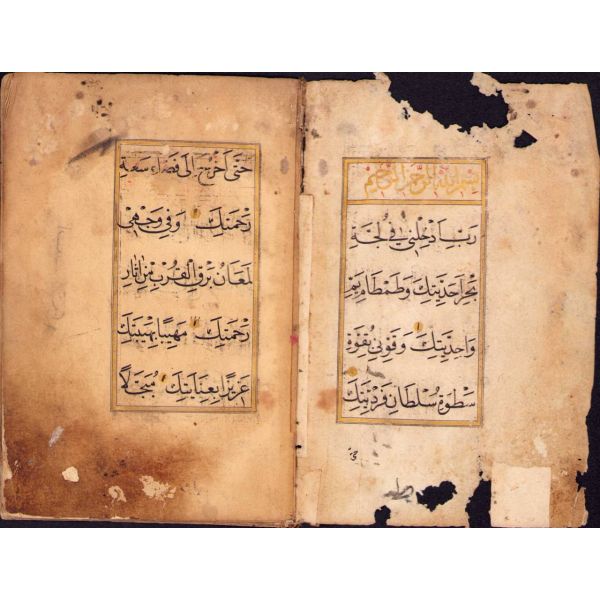 بِسْمِ اللهِ الرَّحْمٰنِ الرَّحِيمِ
رَبِّ اَدْخِلْنِي فِي لُجَّةِ
بَحْرِ اَحَدِيَّتِكَ وَطَمْطَامِ يَمِّ
وَاحِدِيَّتِكَ وَقَوِّنِي بِقُوَّةِ
سَطْوَةِ سُلْطَانِ فَرْدِيَّتِكَ
حَتّٰى اَخْرُجَ اِلٰى فَضَاءِ سَعَةِ
رَحْمَتِكَ وَفِي وَجْهِي
لَمَعَانُ بَرْقِ الْقُرْبِ مِنْ اٰثَارِ
رَحْمَتِكَ مَهِيبًا بِهَيْبَتِكَ
عَزِيزًا بِعِنَايَتِكَ مُبَجَّلًا